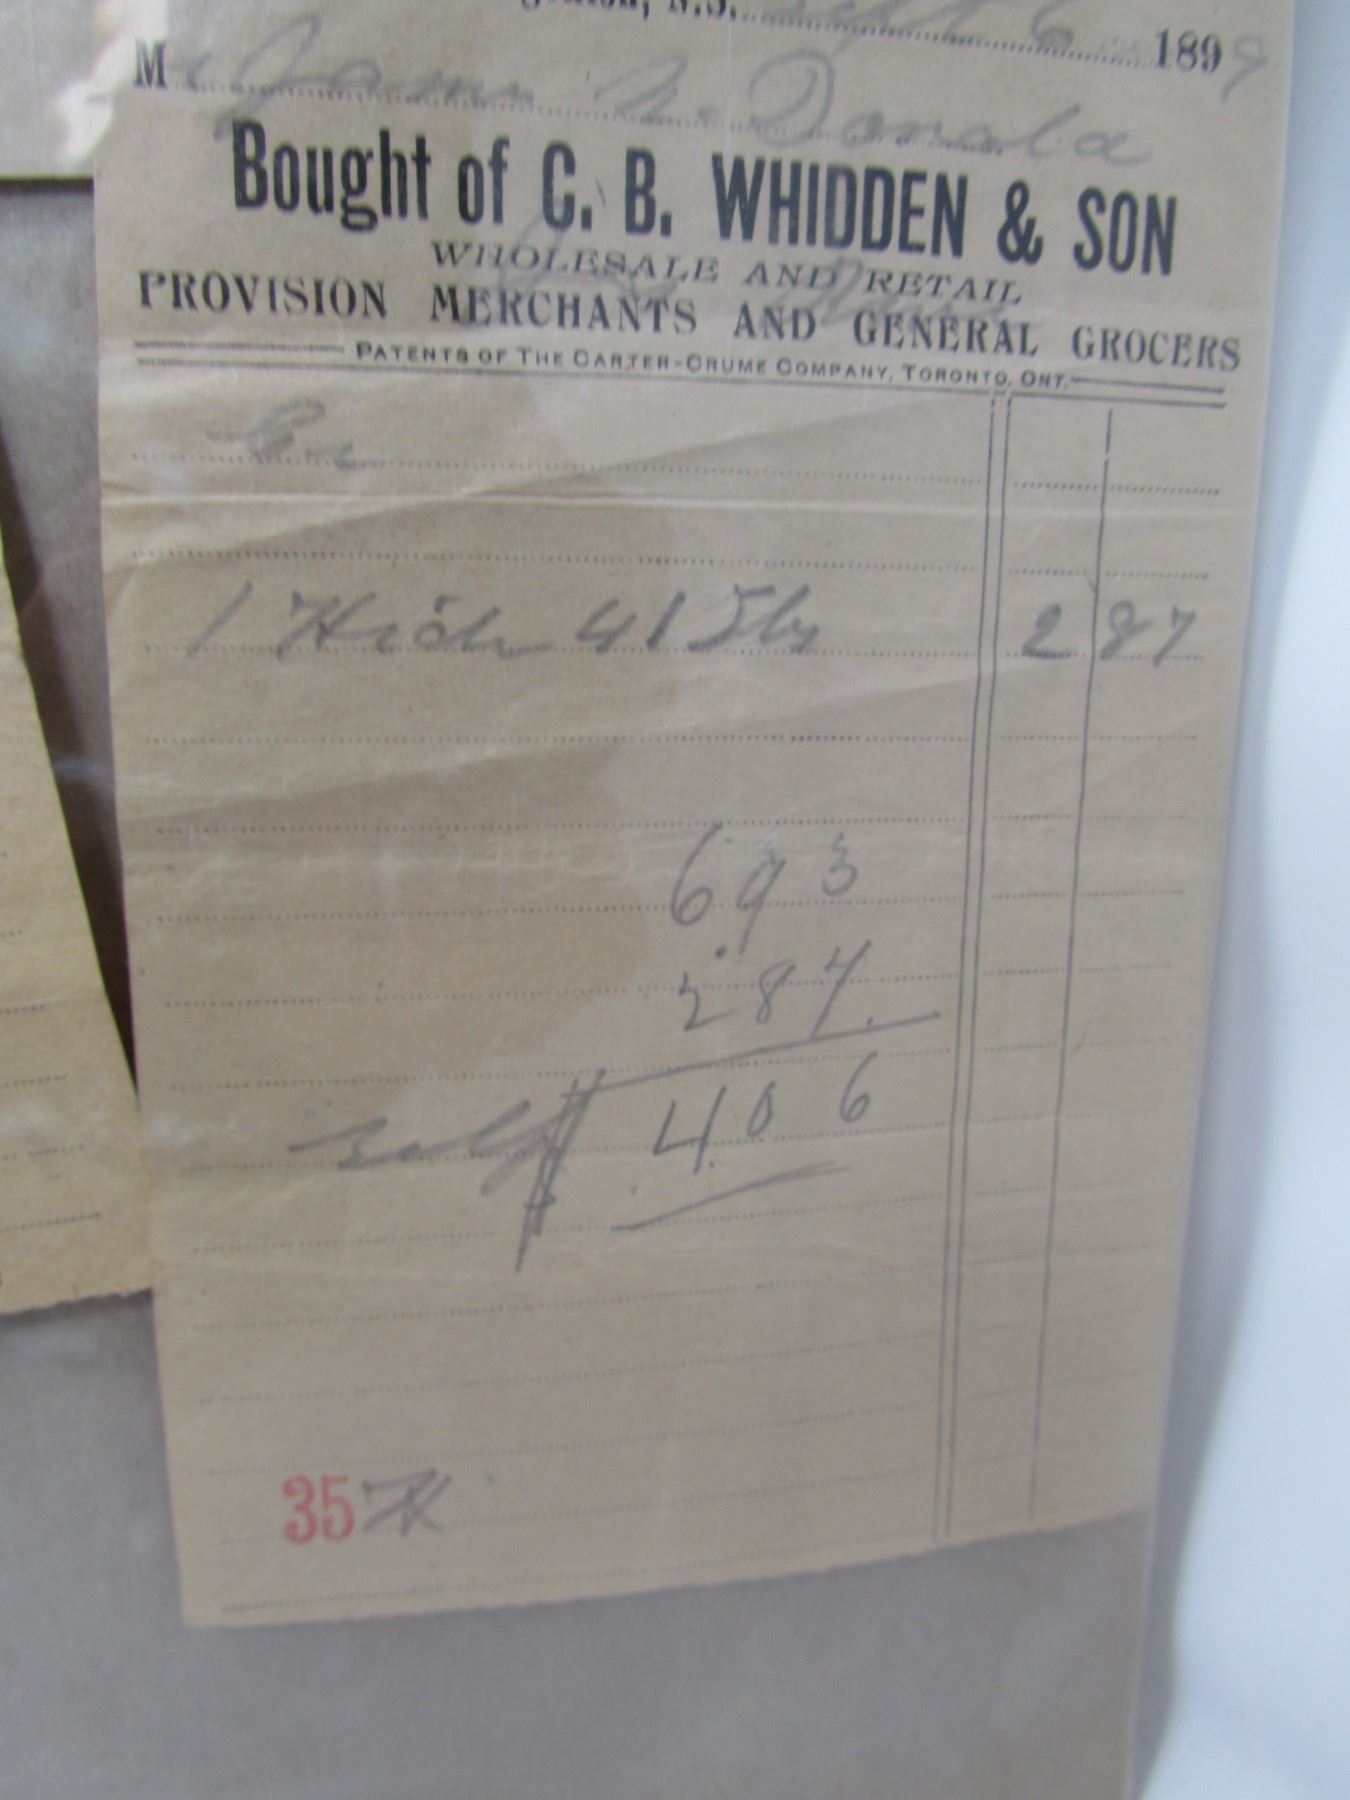 N.S. Sept 6 1899
M James McDonald
Bought of C. B. WHIDDEN & SON
WHOLESALE AND RETAIL
PROVISION MERCHANTS AND GENERAL GROCERS
PATENTS OF THE CARTER-CRUME COMPANY, TORONTO, ONT.
Cr
1 Hide 41 5 2 87
693
287
$ 4.06
35